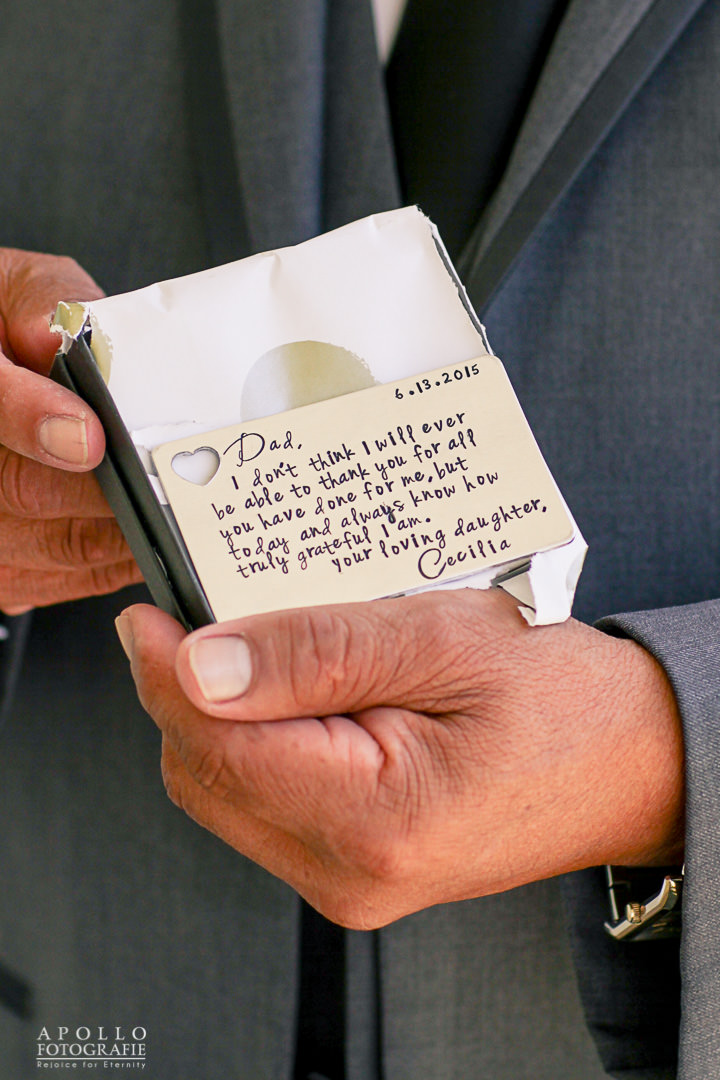 6.13.2015
Dad,
I don't think I will ever
be able to thank you for all
you have done for me, but
today and always know how
truly grateful I am.
your loving daughter,
Cecilia
APOLLO
FOTOGRAFIE
Rejoice for Eternity